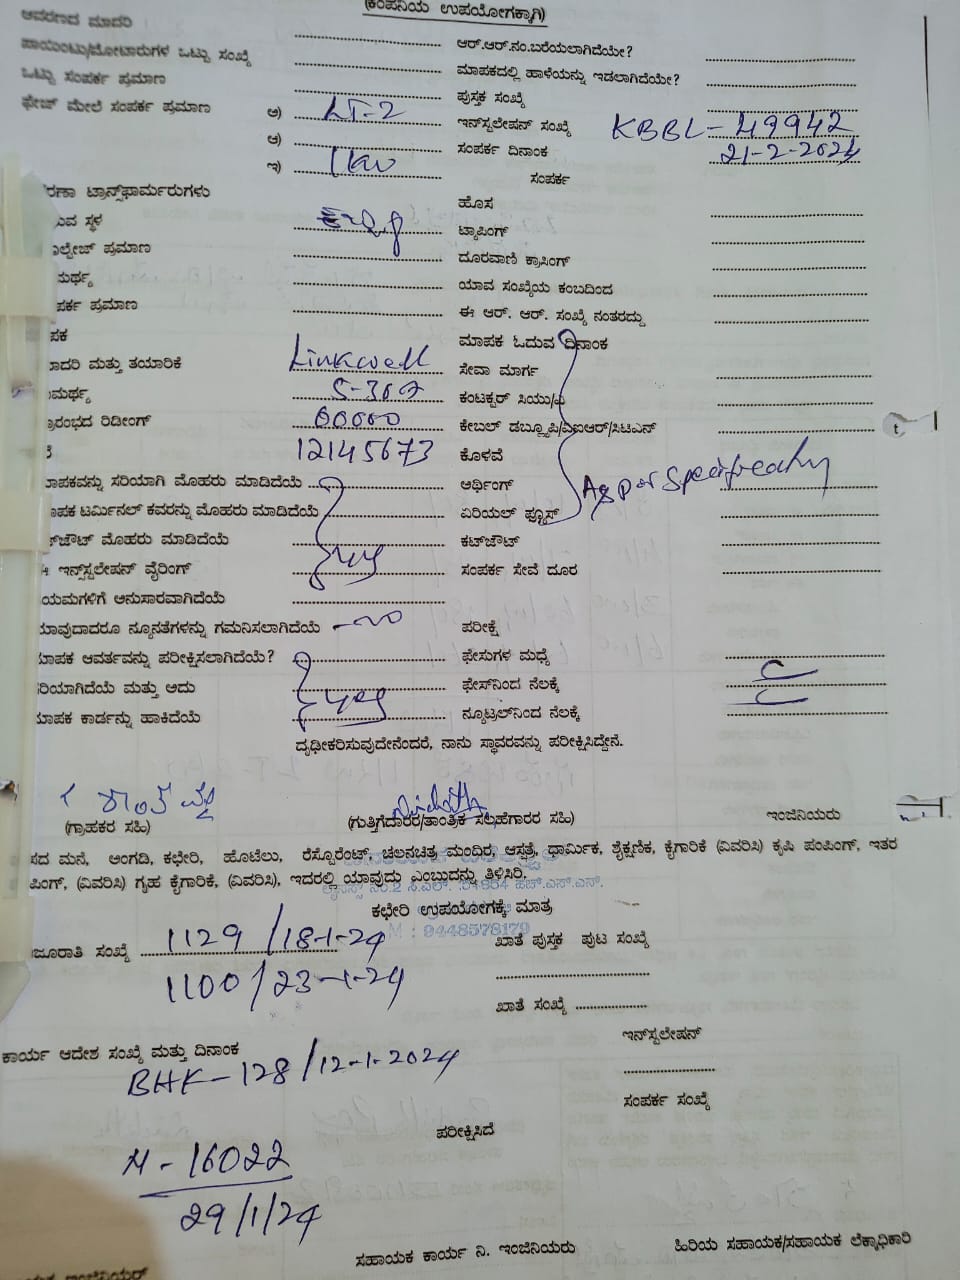 (ಕಂಪನಿಯ ಉಪಯೋಗಕ್ಕಾಗಿ)
ಆವರಣದ ಮಾದರಿ
ಆರ್.ಆರ್.ನಂ.ಬರೆಯಲಾಗಿದೆಯೇ?
ಪಾಯಿಂಟು/ಮೋಟಾರುಗಳ ಒಟ್ಟು ಸಂಖ್ಯೆ
ಮಾಪಕದಲ್ಲಿ ಹಾಳೆಯನ್ನು ಇಡಲಾಗಿದೆಯೇ?
ಒಟ್ಟು ಸಂಪರ್ಕ ಪ್ರಮಾಣ
ಪುಸ್ತಕ ಸಂಖ್ಯೆ
ಫೇಜ್ ಮೇಲೆ ಸಂಪರ್ಕ ಪ್ರಮಾಣ ಅ) LT-2
ಇನ್‌ಸ್ಟಲೇಷನ್ ಸಂಖ್ಯೆ KBBL-49942
ಆ)
ಸಂಪರ್ಕ ದಿನಾಂಕ 21-2-2024
ಇ) 1kw
ಸಂಪರ್ಕ
ರಣಾ ಟ್ರಾನ್ಸ್‌ಫಾರ್ಮರುಗಳು
ಹೊಸ
ುವ ಸ್ಥಳ
ಟ್ಯಾಪಿಂಗ್
ೋಲ್ಟೇಜ್ ಪ್ರಮಾಣ
ದೂರವಾಣಿ ಕ್ರಾಸಿಂಗ್
ಮರ್ಥ್ಯ
ಯಾವ ಸಂಖ್ಯೆಯ ಕಂಬದಿಂದ
ಪರ್ಕ ಪ್ರಮಾಣ
ಈ ಆರ್. ಆರ್. ಸಂಖ್ಯೆ ನಂತರದ್ದು
ಪಕ
ಮಾಪಕ ಓದುವ ದಿನಾಂಕ
ಾದರಿ ಮತ್ತು ತಯಾರಿಕೆ Linkwell
ಸೇವಾ ಮಾರ್ಗ
ಾಮರ್ಥ್ಯ 5-30A
ಕಂಟಕ್ಟರ್ ಸಿಯು/
್ರಾರಂಭದ ರಿಡೀಂಗ್ 00000
ಕೇಬಲ್ ಡಬ್ಲ್ಯೂಪಿ/ವಿಐಆರ್/ಸಿಟಿಎಸ್
12145673
ಕೊಳವೆ
ಾಪಕವನ್ನು ಸರಿಯಾಗಿ ಮೊಹರು ಮಾಡಿದೆಯೆ
ಆರ್ಥಿಂಗ್
ಾಪಕ ಟರ್ಮಿನಲ್ ಕವರನ್ನು ಮೊಹರು ಮಾಡಿದೆಯೆ
ಏರಿಯಲ್ ಫ್ಯೂಸ್
ಟ್‌ಔಟ್ ಮೊಹರು ಮಾಡಿದೆಯೆ yes
ಕಟ್‌ಔಟ್
ಇನ್‌ಸ್ಟಲೇಷನ್ ವೈರಿಂಗ್
ಸಂಪರ್ಕ ಸೇವೆ ದೂರ
ಯಮಗಳಿಗೆ ಅನುಸಾರವಾಗಿದೆಯೆ
ಾವುದಾದರೂ ನ್ಯೂನತೆಗಳನ್ನು ಗಮನಿಸಲಾಗಿದೆಯೆ - no
ಪರೀಕ್ಷೆ
ಮಾಪಕ ಆವರ್ತವನ್ನು ಪರೀಕ್ಷಿಸಲಾಗಿದೆಯೆ?
ಫೇಸುಗಳ ಮಧ್ಯೆ
ರಿಯಾಗಿದೆಯೆ ಮತ್ತು ಅದು yes
ಫೇಸ್‌ನಿಂದ ನೆಲಕ್ಕೆ
ಮಾಪಕ ಕಾರ್ಡನ್ನು ಹಾಕಿದೆಯೆ
ನ್ಯೂಟ್ರಲ್‌ನಿಂದ ನೆಲಕ್ಕೆ
ದೃಢೀಕರಿಸುವುದೇನೆಂದರೆ, ನಾನು ಸ್ಥಾವರವನ್ನು ಪರೀಕ್ಷಿಸಿದ್ದೇನೆ.
(ಗ್ರಾಹಕರ ಸಹಿ)
(ಗುತ್ತಿಗೆದಾರರ/ತಾಂತ್ರಿಕ ಸಲಹೆಗಾರರ ಸಹಿ)
ಇಂಜಿನಿಯರು
ಸದ ಮನೆ, ಅಂಗಡಿ, ಕಛೇರಿ, ಹೊಟೆಲು, ರೆಸ್ಟೋರೆಂಟ್, ಚಲನಚಿತ್ರ ಮಂದಿರ, ಆಸ್ಪತ್ರೆ, ಧಾರ್ಮಿಕ, ಶೈಕ್ಷಣಿಕ, ಕೈಗಾರಿಕೆ (ವಿವರಿಸಿ) ಕೃಷಿ ಪಂಪಿಂಗ್, ಇತರ
ಪಿಂಗ್, (ವಿವರಿಸಿ) ಗೃಹ ಕೈಗಾರಿಕೆ, (ವಿವರಿಸಿ), ಇದರಲ್ಲಿ ಯಾವುದು ಎಂಬುದನ್ನು ತಿಳಿಸಿರಿ.
ಕಛೇರಿ ಉಪಯೋಗಕ್ಕೆ ಮಾತ್ರ
M : 9448578179
ಜೂರಾತಿ ಸಂಖ್ಯೆ 1129/18-1-24
ಖಾತೆ ಪುಸ್ತಕ ಪುಟ ಸಂಖ್ಯೆ
1100/23-1-24
ಖಾತೆ ಸಂಖ್ಯೆ
ಇನ್‌ಸ್ಟಲೇಷನ್
ಕಾರ್ಯ ಆದೇಶ ಸಂಖ್ಯೆ ಮತ್ತು ದಿನಾಂಕ
BHK-128/12-1-2024
ಸಂಪರ್ಕ ಸಂಖ್ಯೆ
ಪರೀಕ್ಷಿಸಿದೆ
M-16022
29/1/24
ಸಹಾಯಕ ಕಾರ್ಯ ನಿ. ಇಂಜಿನಿಯರು
ಹಿರಿಯ ಸಹಾಯಕ/ಸಹಾಯಕ ಲೆಕ್ಕಾಧಿಕಾರಿ